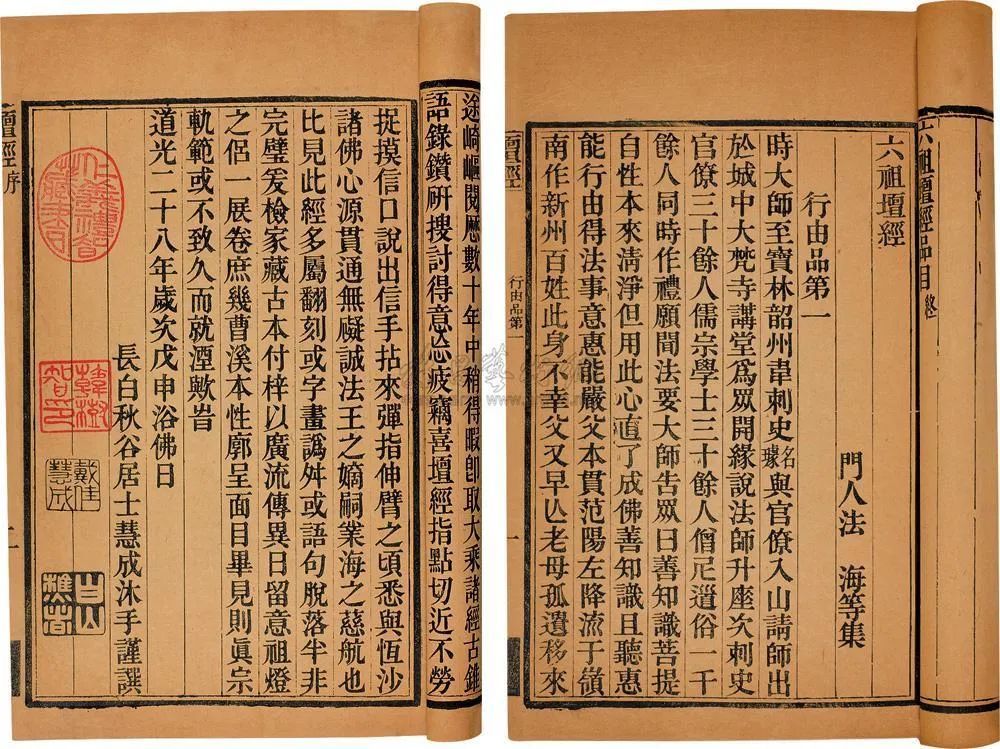 途崎嶇閱歷數十年中稍得暇卽取大乘諸經古錐
語錄鑽硏搜討得意忘疲竊喜壇經指點切近不勞
捉摸信口說出信手拈來彈指伸臂之頃悉與恆沙
諸佛心源貫通無礙誠法王之嫡嗣業海之慈航也
比見此經多屬翻刻或字畫譌舛或語句脫落半非
完璧爰檢家藏古本付梓以廣流傳異日留意祖燈
之侶一展卷庶幾曹溪本性廓呈面目畢見則眞宗
軌範或不致久而就湮歟旹
道光二十八年歲次戊申浴佛日
長白秋谷居士慧成沐手謹譔
戴佳慧成
壇經 序
六祖壇經品目 終
六祖壇經
門人法 海等集
行由品第一
時大師至寶林韶州韋刺史名璩與官僚入山請師出
於城中大梵寺講堂爲眾開緣說法師升座次刺史
官僚三十餘人儒宗學士三十餘人僧尼道俗一千
餘人同時作禮願聞法要大師告眾曰善知識菩提
自性本來淸淨但用此心直了成佛善知識且聽惠
能行由得法事意惠能嚴父本貫范陽左降流于嶺
南作新州百姓此身不幸父又早亾老母孤遺移來
壇經
行由品第一
一